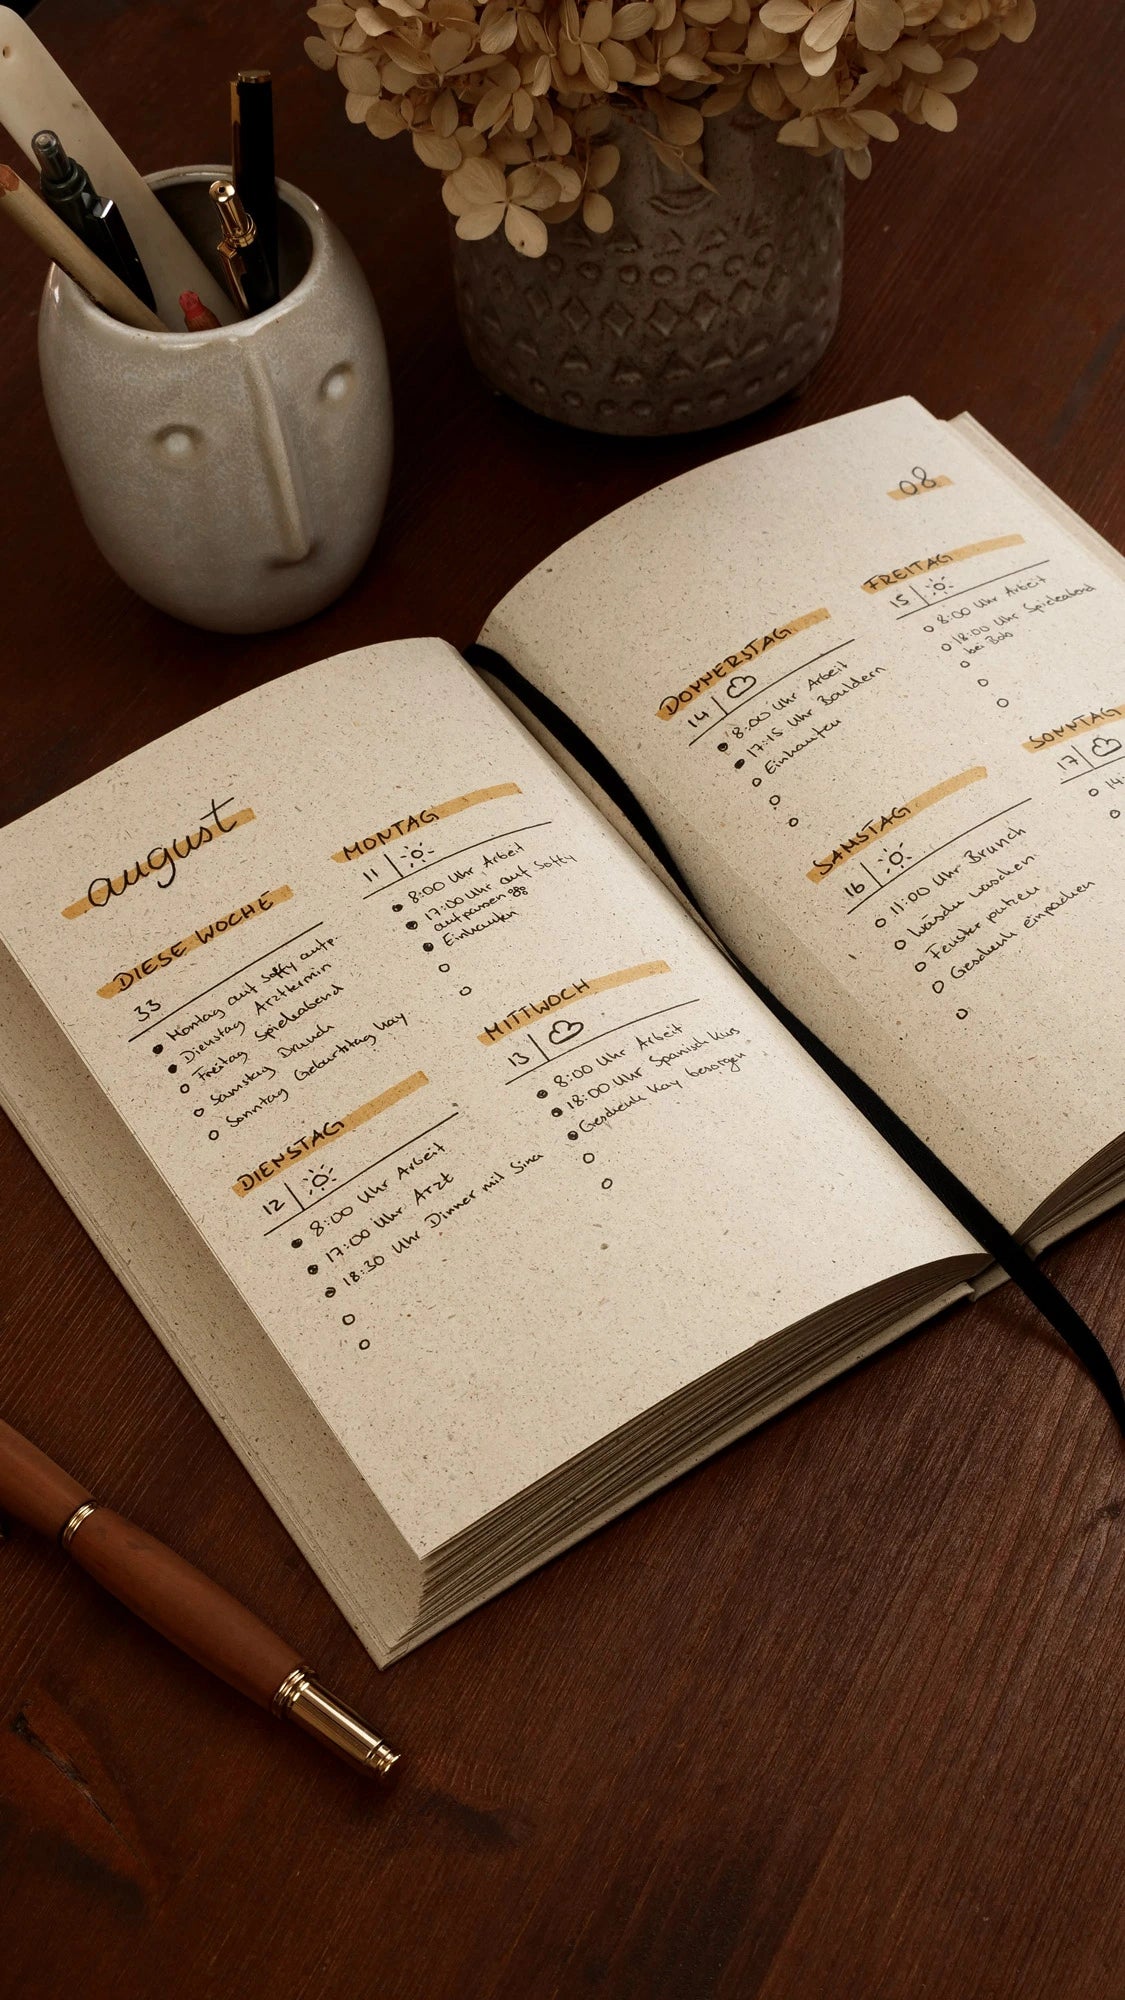 august
DIESE WOCHE
33
Montag auf Softy aufp.
Dienstag Arzttermin
Freitag Spieleabend
Samstag Brunch
Sonntag Geburtstag Kay
MONTAG
11
8:00 Uhr Arbeit
17:00 Uhr auf Softy
aufpassen
Einkaufen
DIENSTAG
12
8:00 Uhr Arbeit
17:00 Uhr Arzt
18:30 Uhr Dinner mit Sina
MITTWOCH
13
8:00 Uhr Arbeit
18:00 Uhr Spanisch Kurs
Geschenk Kay besorgen
08
DONNERSTAG
14
8:00 Uhr Arbeit
17:15 Uhr Bouldern
Einkaufen
FREITAG
15
8:00 Uhr Arbeit
18:00 Uhr Spieleabend
bei Bob
SAMSTAG
16
11:00 Uhr Brunch
Wäsche waschen
Fenster putzen
Geschenk einpacken
SONNTAG
17
14: